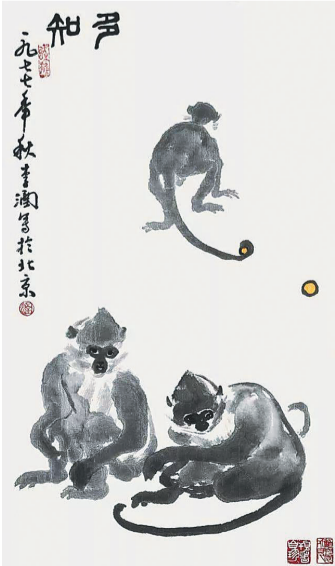 多知
一九七七年秋李涵写於北京